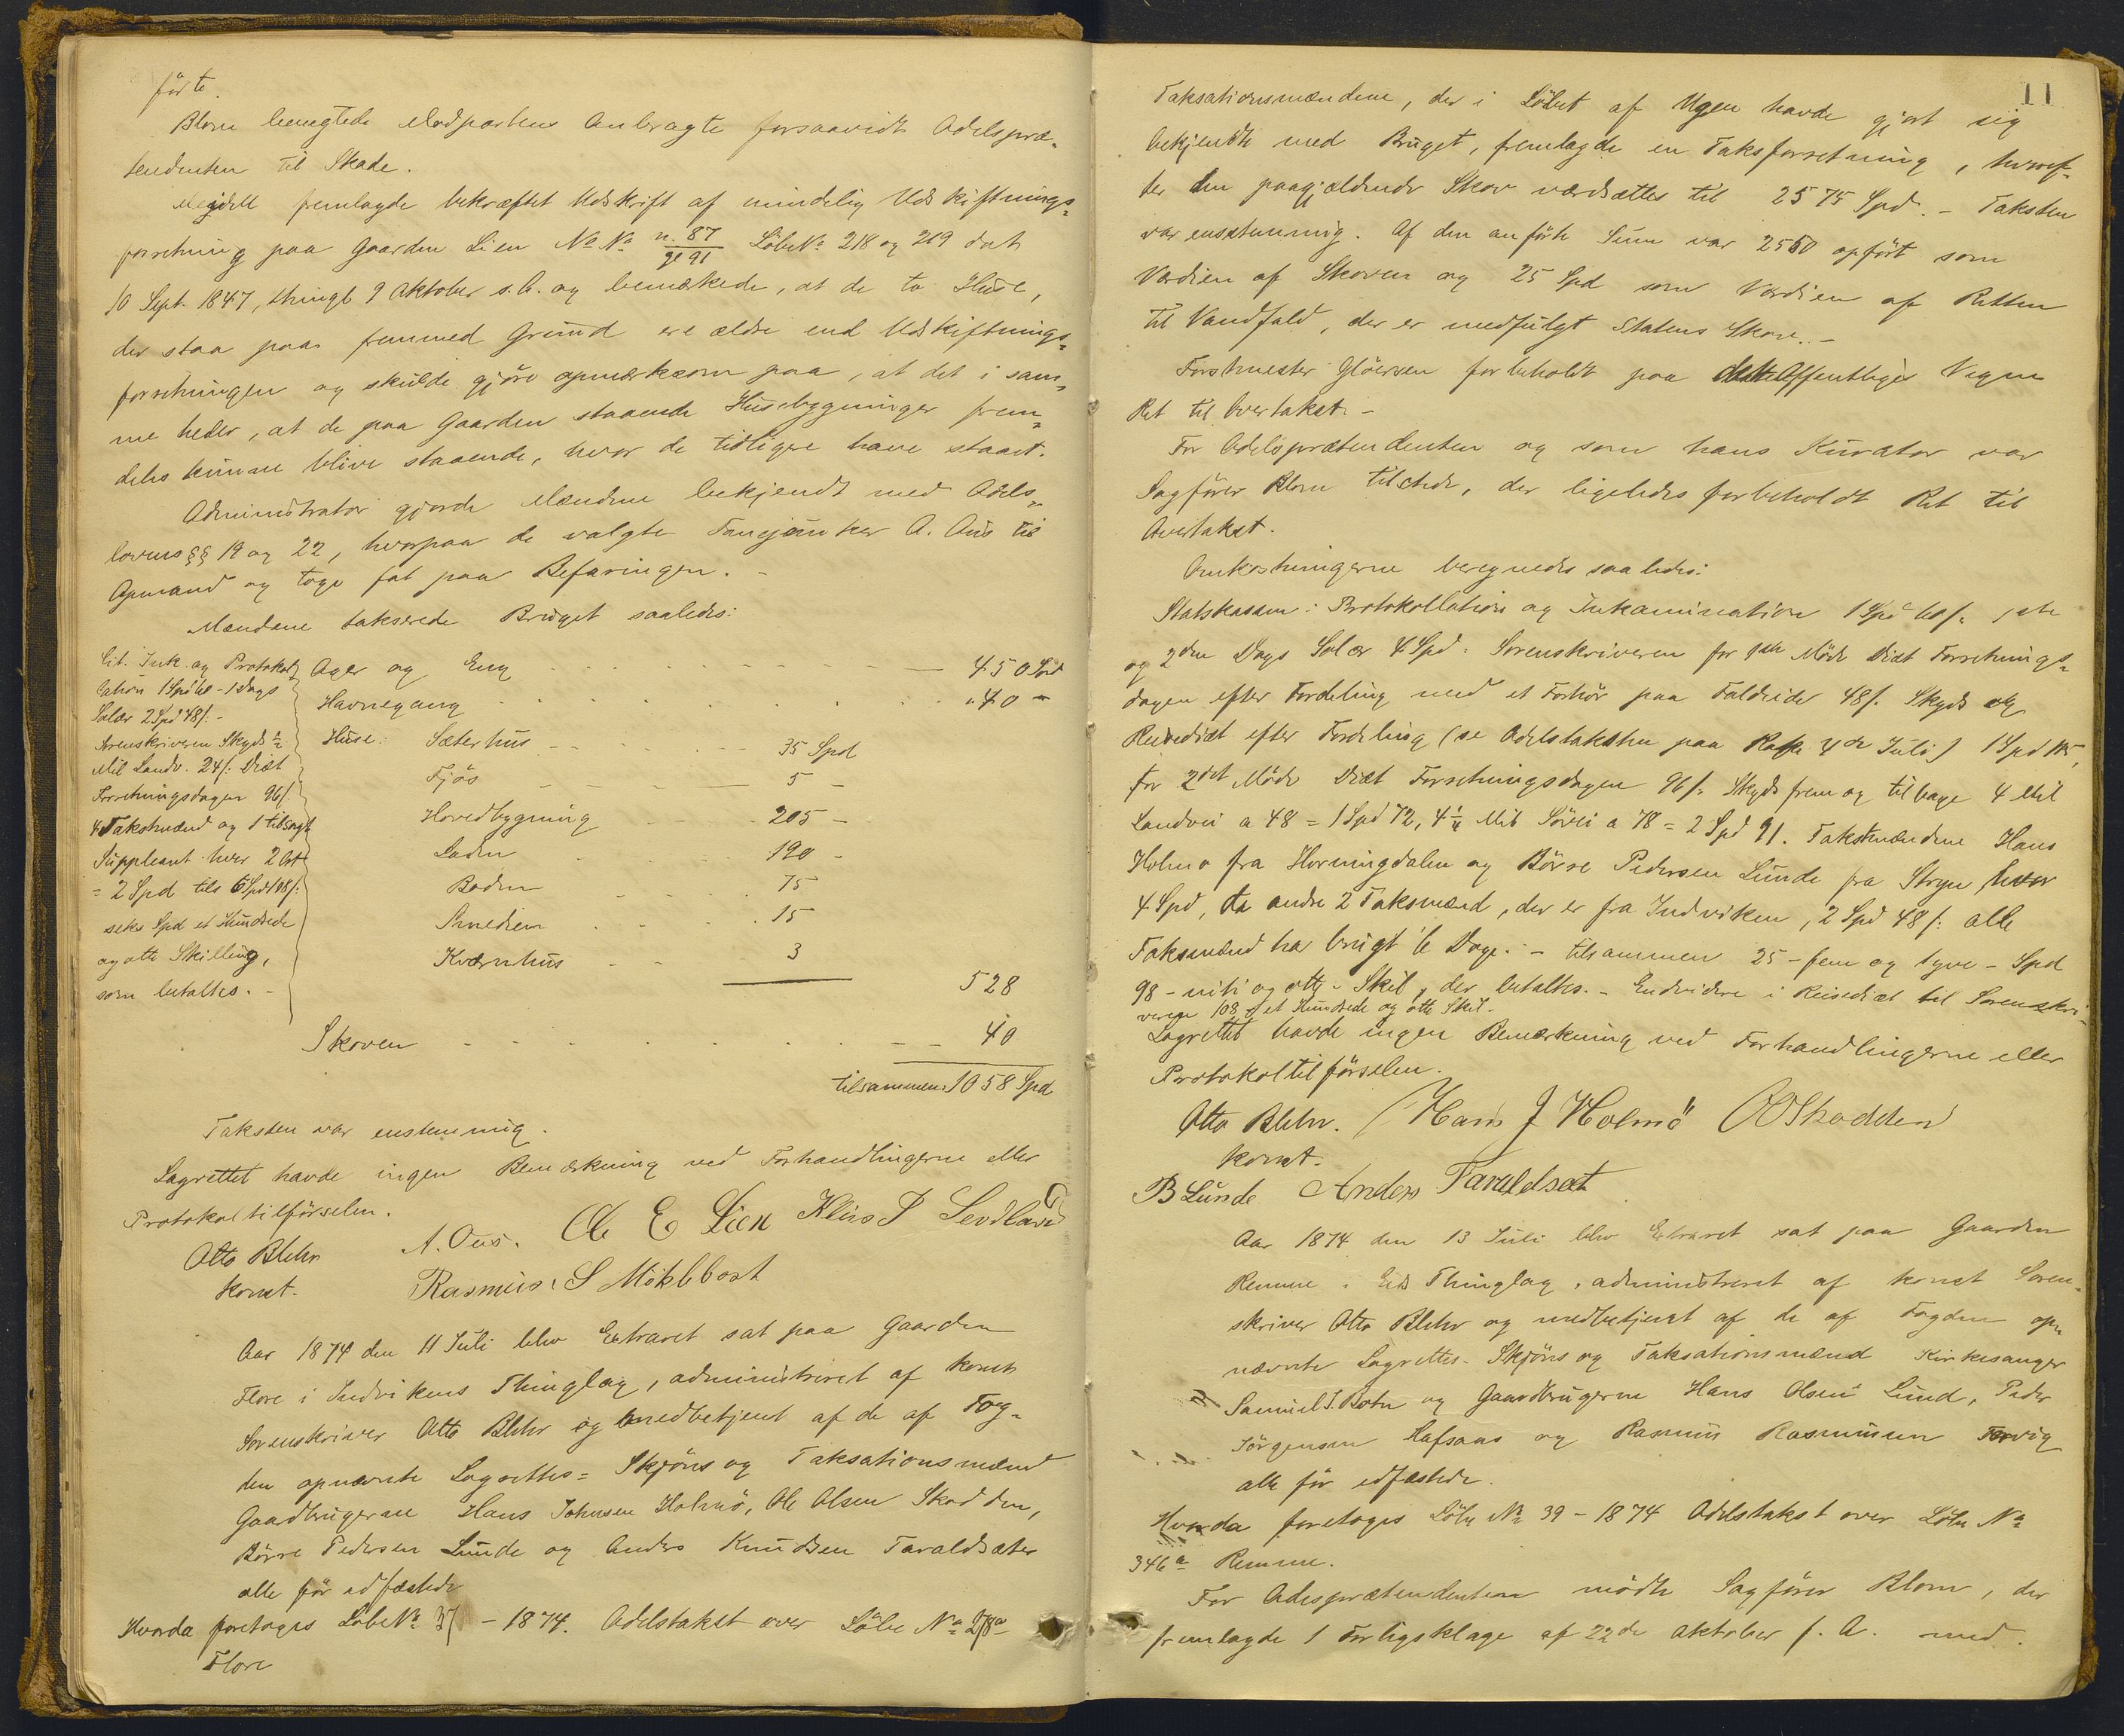 förte.
Blom benegtede Modpartens Anbragte forsaavidt Odelspræ-
tendenten til Skade.
Mejdell fremlagde bekræftet Udskrift af mindelig Udskiftnings-
forretning paa Gaarden Lien No No n. 87 / gl 91 Löbe No 218 og 219 dat
10 Sept. 1847, thingl 9 Oktober s. A. og bemærkede, at de to Huse,
der staa paa fremmed Grund ere ældre end Udskiftnings-
forretningen og skulde gjöre opmærksom paa, at det i sam-
me heder, at de paa Gaarden staaende Husebygninger frem-
deles kunne blive staaende, hvor de tidligere have staaet.
Administrator gjorde Mændene bekjendt med Odels-
lovens §§ 19 og 22, hvorpaa de valgte Fanejunker A. Aus til
Opmand og toge fat paa Befaringen. -
Mændene takserede Bruget saaledes:
Cit. Ink. og Protokol-
lation 1 Spd - 1 Dags
Salær 2 Spd 48 s. -
Sorenskriveren Skyds ½
Mil Landv. 24 s. Diæt
Forretningsdagen 96 s.
4 Takstmænd og 1 tilsagt
Suppleant hver 2 Ort
= 2 Spd tils 6 Spd 108 s.
seks Spd et Hundrede
og otte Skilling,
som betaltes. -
Ager og Eng - - - 450 Spd
Havnegang - - - " 40 -
Huse: Sæterhus - - - 35 Spd
Fjös - - - 5 -
Hovedbygning - - - 205 -
Laden - - - 190 -
Boden - - - 75
Smedien - - - 15
Kværnhus - - - 3
528
Skoven - - - 40
tilsammen: 1058 Spd
Taksten var enstemmig.
Lagrettet havde ingen Bemærkning ved Forhandlingerne eller
Protokoltilförselen.
Otto Blehr A. Ous. Ole E Lien Klaus S
konst. Rasmus S Möklebost
Aar 1874 den 11 Juli blev Extraret sat paa Gaarden
Flore i Indvikens Thinglag, administreret af konst
Sorenskriver Otto Blehr og medbetjent af de af Fog-
den opnævnte Lagrettes- Skjöns og Taksationsmænd
Gaardbrugerne Hans Johnsen Holmö, Ole Olsen Skodden,
Börre Pedersen Lunde og Anders Knudsen Taraldsæter
alle för edfæstede
Hvorda foretoges Löbe No 37 - 1874. Odelstakst over Löbe No 278a
Flore
11
Taksationsmændene, der i Löbet af Ugen havde gjort sig
bekjendt med Bruget, fremlagde en Taksforretning, hvoref-
ter den paagjældende Skov værdsættes til 2575 Spd. - Taksten
var enstemmig. Af den anförte Sum var 2550 opfört som
Værdien af Skoven og 25 Spd som Værdien af Retten
til Vandfald, der er medfulgt Statens Skove. -
Forstmester Glöersen forbeholdt paa det Offentliges Vegne
Ret til Overtakst. -
For Odelsprætendenten og som hans Kurator var
Sagförer Blom tilstede, der ligeledes forbeholdt Ret til
Overtakst.
Omkostningerne beregnedes saaledes:
Statskassen: Protokollation og Inkamination 1 Spd 60 s. 1ste
og 2den Dags Salær 4 Spd. Sorenskriveren for 1ste Möde Diæt Forretnings-
dagen efter Fordeling med et Forhör paa Faldeide 48 s. Skyds og
Reisediæt efter Fordeling (se Odelstaksten paa 4de Juli) 1 Spd
for 2det Möde Diæt Forretningsdagen 96 s. Skyds frem og tilbage 4 Mil
Landvei a 48 = 1 Spd 72, 4¼ Mil Sövei a 78 = 2 Spd 91. Takstmændene Hans
Holmö fra Horningdalen og Börre Pedersen Lunde fra Stryn hver
4 Spd, de andre 2 Taksmænd, der er fra Indviken, 2 Spd 48 s. alle
Taksmænd har brugt 6 Dage. - tilsammen 25 - fem og tyve - Spd
98 - niti og otte - Skil, der betaltes. - Endvidere i Reisediæt til Sorenskri-
veren 108 s et Hundrede og otte Skil. -
Lagrettet havde ingen Bemærkning ved Forhandlingerne eller
Protokoltilförselen.
Otto Blehr. Hans J Holmö O O Skodden
konst.
B Lunde Anders Taraldset
Aar 1874 den 13 Juli blev Extraret sat paa Gaarden
Remme i Eids Thinglag, administreret af konst Soren-
skriver Otto Blehr og medbetjent af de af Fogden op-
nævnte Lagrettes- Skjöns og Taksationsmænd Kirkesanger
Samuel J. Botn og Gaardbrugerne Hans Olsen Lund, Peder
Jörgensen Hafsaas og Rasmus Rasmussen Torvig
alle för edfæstede.
Hvorda foretoges Löbe No 39 - 1874 Odelstakst over Löbe No
346a Remme.
For Odelsprætendenten mödte Sagförer Blom, der
fremlagde 1 Forligsklage af 22de Oktober f. A. med